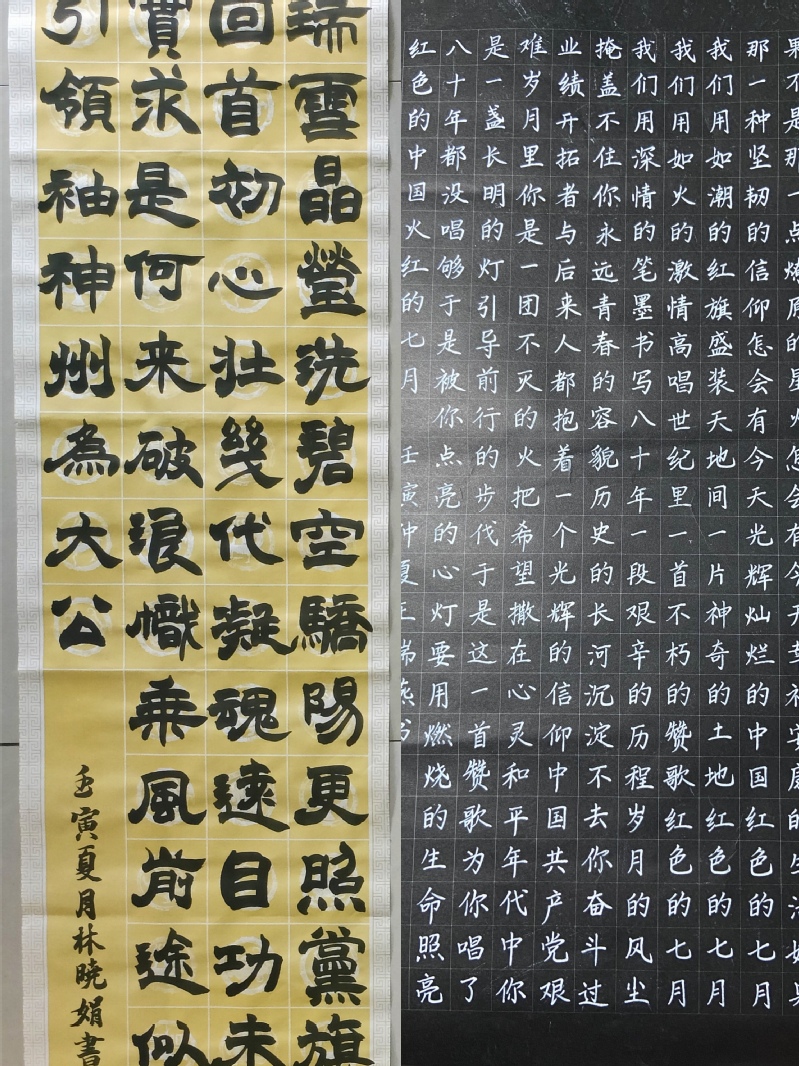 瑞雪晶瑩洗碧空驕陽更照黨旗
回首初心壯幾代凝魂遠目功未
實求是何来破浪幟乗風前途似
引領袖神州為大公
壬寅夏月林曉娟書
果不是那一点燎原的星火怎会有今天幸福安康的生活如果
那一种坚韧的信仰怎会有今天光辉灿烂的中国红色的七月
我们用如潮的红旗盛装天地间一片神奇的土地红色的七月
我们用如火的激情高唱世纪里一首不朽的赞歌红色的七月
我们用深情的笔墨书写八十年一段艰辛的历程岁月的风尘
掩盖不住你永远青春的容貌历史的长河沉淀不去你奋斗过
业绩开拓者与后来人都抱着一个光辉的信仰中国共产党艰
难岁月里你是一团不灭的火把希望撒在心灵和平年代中你
是一盏长明的灯引导前行的步伐于是这一首赞歌为你唱了
八十年都没唱够于是被你点亮的心灯要用燃烧的生命照亮
红色的中国火红的七月
壬寅仲夏王瑞燕书